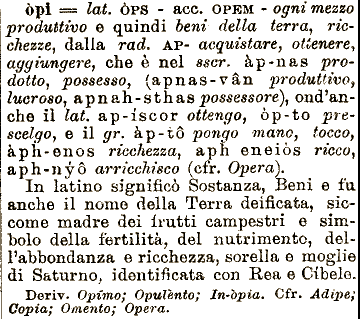 òpi = lat. ÒPS - acc. OPEM - ogni mezzo
produttivo e quindi beni della terra, ric-
chezze, dalla rad. AP- acquistare, ottenere,
aggiungere, che è nel sscr. àp-nas pro-
dotto, possesso, (apnas-vân produttivo,
lucroso, apnah-sthas possessore), ond'an-
che il lat. ap-íscor ottengo, òp-to pre-
scelgo, e il gr. àp-tô pongo mano, tocco,
àph-enos ricchezza, aph eneiòs ricco,
aph-nýô arricchisco (cfr. Opera).
In latino significò Sostanza, Beni e fu
anche il nome della Terra deificata, sic-
come madre dei frutti campestri e sim-
bolo della fertilità, del nutrimento, del-
l'abbondanza e ricchezza, sorella e moglie
di Saturno, identificata con Rea e Cíbele.
Deriv. Opímo; Opulènto; In-òpia. Cfr. Adipe;
Copia; Omento; Opera.